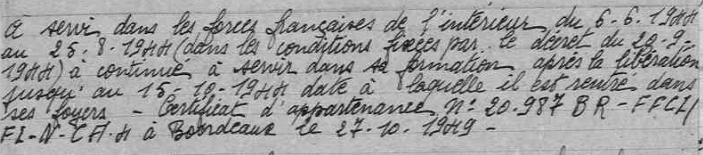 A servi dans les forces françaises de l'intérieur du 6-6-1944
au 25-8-1944 (dans les conditions fixées par le décret du 20-9-
1944) à continué à servir dans sa formation après la libération
jusqu'au 15-10-1944 date à laquelle il est rentré dans
ses foyers - Certificat d'appartenance N° 20.987 BR - FFCI/
FI-N-CA.H à Bordeaux le 27-10-1949 -